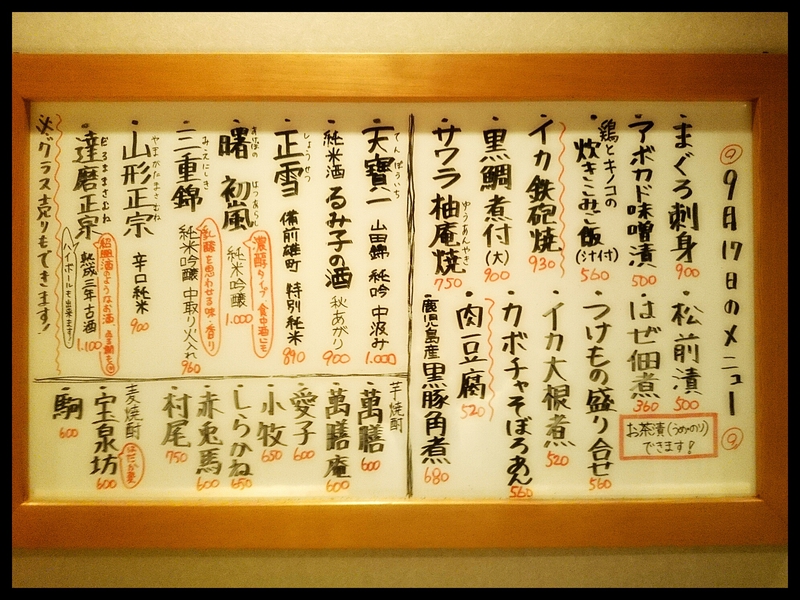 9月17日のメニュー
・まぐろ刺身 900
・アボカド味噌漬 500
・鶏とキノコの炊きこみご飯(汁付) 560
・イカ鉄砲焼 930
・黒鯛煮付(大) 900
・サワラ柚庵焼 750
ゆうあんやき
・松前漬 500
・はぜ佃煮 360
お茶漬(うめ・のり)
できます!
・つけもの盛り合せ 560
・イカ大根煮 520
・カボチャそぼろあん 560
・肉豆腐 520
・鹿児島産黒豚角煮 680
・天寶一 山田錦 純吟 中汲み 1.000
てんぽういち
・純米酒 るみ子の酒 秋あがり 900
・正雪 備前雄町 特別純米 890
しょうせつ
・曙 初嵐 純米吟醸 1.000
あけぼの はつあらし
濃醇タイプ 食中酒にも
・三重錦 純米吟醸 中取り火入れ 960
みえにしき
乳酸を思わせる味・香り
・山形正宗 辛口純米 900
やまがたまさむね
・達磨正宗 熟成三年古酒 1.100
だるままさむね
紹興酒のようなお酒。
ハイボールも出来ます!
※グラス売りもできます!
芋焼酎
・萬膳 600
・萬膳庵 600
・愛子 600
・小牧 650
・しらかね 650
・赤兎馬 600
・村尾 750
麦焼酎
・宝泉坊 600
はだか麦
・駒 600